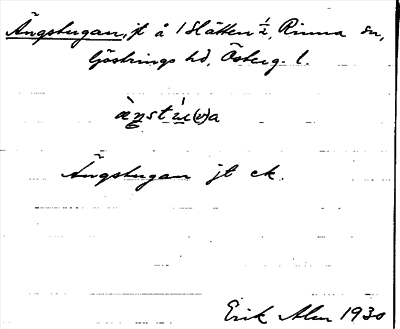 Ängstugan, jt å 1 Slätten ½, Rinna sn,
Göstrings hd, Österg. l.
ä̀ŋstú(v)a
Ängstugan jt ek.
Erik Alm 1930